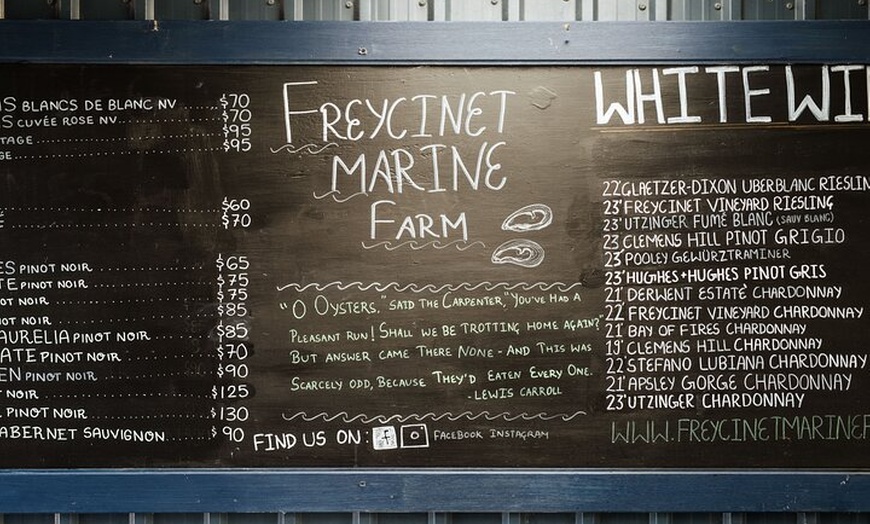 BLANCS DE BLANC NV ..... $70
CUVÉE ROSE NV ..... $70
$95
$95
$60
$70
PINOT NOIR ..... $65
PINOT NOIR ..... $75
NOIR ..... $75
NOIR ..... $85
AURELIA PINOT NOIR ..... $85
PINOT NOIR ..... $70
PINOT NOIR ..... $90
NOIR ..... $125
PINOT NOIR ..... $130
CABERNET SAUVIGNON ..... $90
FREYCINET
MARINE
FARM
"O OYSTERS," SAID THE CARPENTER, "YOU'VE HAD A
PLEASANT RUN! SHALL WE BE TROTTING HOME AGAIN?"
BUT ANSWER CAME THERE NONE - AND THIS WAS
SCARCELY ODD, BECAUSE THEY'D EATEN EVERY ONE.
-LEWIS CARROLL
FIND US ON: f FACEBOOK INSTAGRAM
WHITE WI
22' GLAETZER-DIXON UBERBLANC RIESLIN
23' FREYCINET VINEYARD RIESLING
23' UTZINGER FUMÉ BLANC (SAUV BLANC)
23 CLEMENS HILL PINOT GRIGIO
23' POOLEY GEWÜRZTRAMINER
23' HUGHES+HUGHES PINOT GRIS
21' DERWENT ESTATE CHARDONNAY
22' FREYCINET VINEYARD CHARDONNAY
21' BAY OF FIRES CHARDONNAY
19' CLEMENS HILL CHARDONNAY
22' STEFANO LUBIANA CHARDONNAY
21' APSLEY GORGE CHARDONNAY
23' UTZINGER CHARDONNAY
WWW.FREYCINETMARINEF